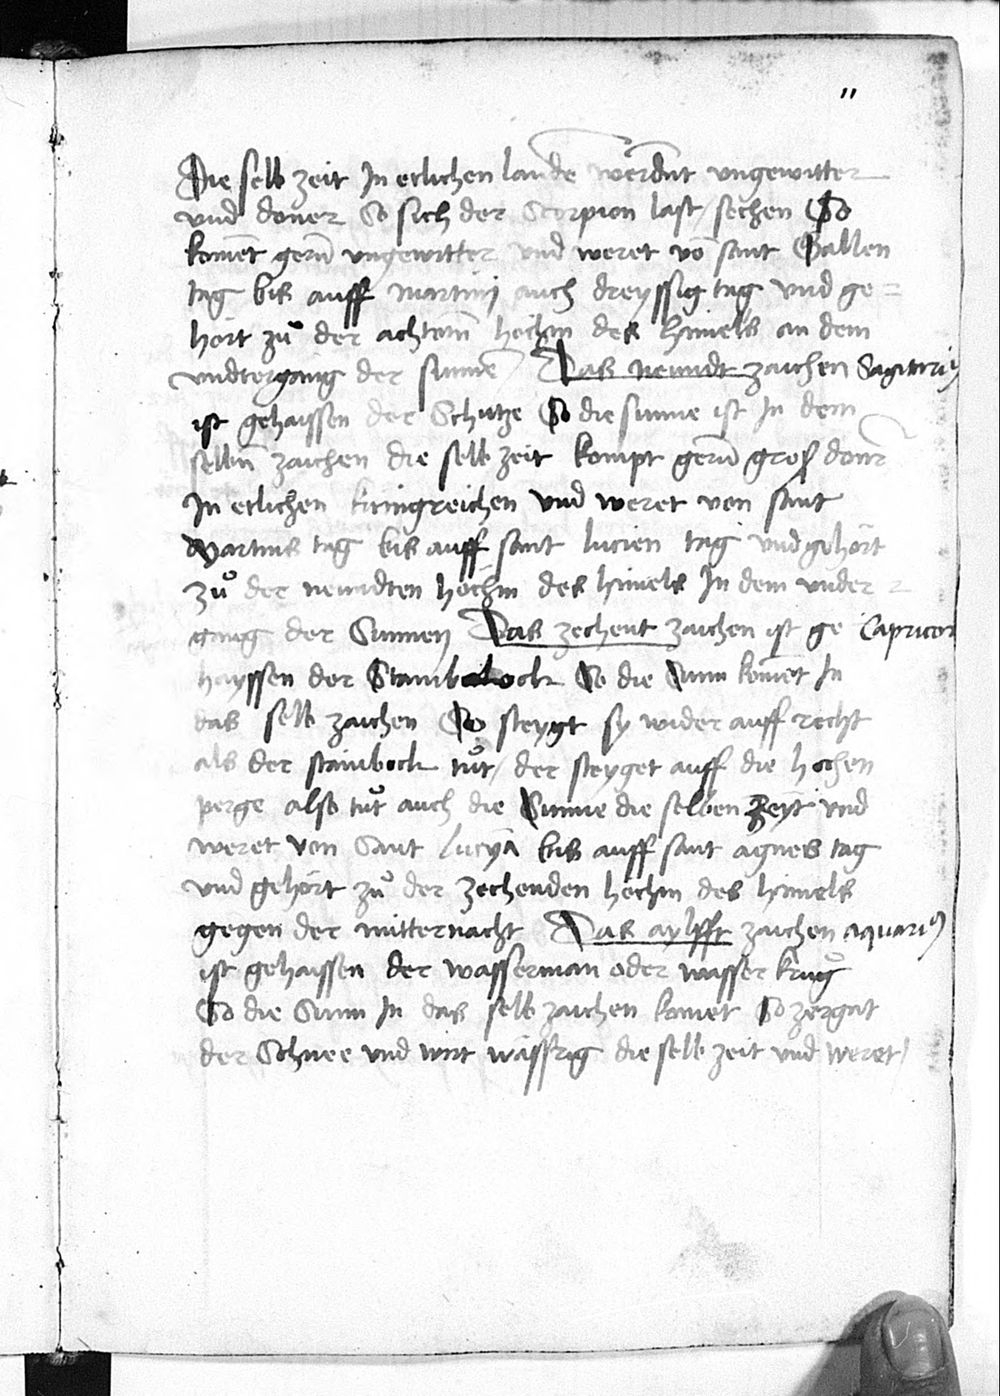 11
Die selb zeit In etlichen lande werdent ungewitter
und doner So sich der Scorpion last sechen So
komet gern ungewitter und weret võ sant Gallen
tag bis auff martinj auch dreyssig tag und ge=
hört zů der achtten höchin des himels an dem
undtergang der sunne Das neundt zaichen Sagitari9
ist gehaissen der Schutze So die sunne ist In dem
selbn zaichen die selb zeit kompt gern groß donr
In etlichen kunigreichen und weret von sant
Martins tag bis auff sant lucien tag und gehört
zů der neundten höchin des himels In dem under=
gang der Sunnen Das zechent zaichen ist ge Capricor
hayssen der Stainbock So die Sunn komet In
das selb zaichen So steygt sy wider auff recht
als der stainbock tůt / der steyget auff die hochen
perge also tůt auch die Sunne die selben Zeyt und
weret von Sant lucya bis auff sant agnes tag
und gehört zů der zechenden höchin des himels
gegen der mitternacht Das aylfft zaichen aquari9
ist gehaissen der wasserman oder wasser krůg
So die Sunn In das selb zaichen komet So zergat
der Schnee und wirt wässrig die selb zeit und weret /